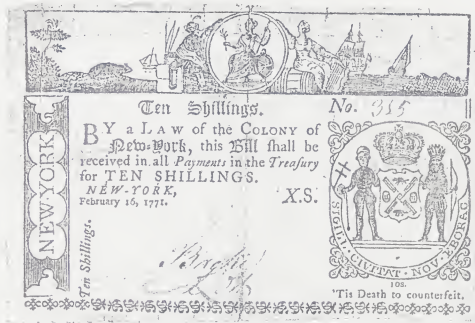 Ten Shillings.
No. 315
BY a LAW of the COLONY of
New-York, this Bill shall be
received in all Payments in the Treasury
for TEN SHILLINGS.
NEW-YORK,
February 16, 1771.
X.S.
NEW-YORK
Ten Shillings.
SIGILL · CIVITAT · NOV · EBORAC
10s.
'Tis Death to counterfeit.